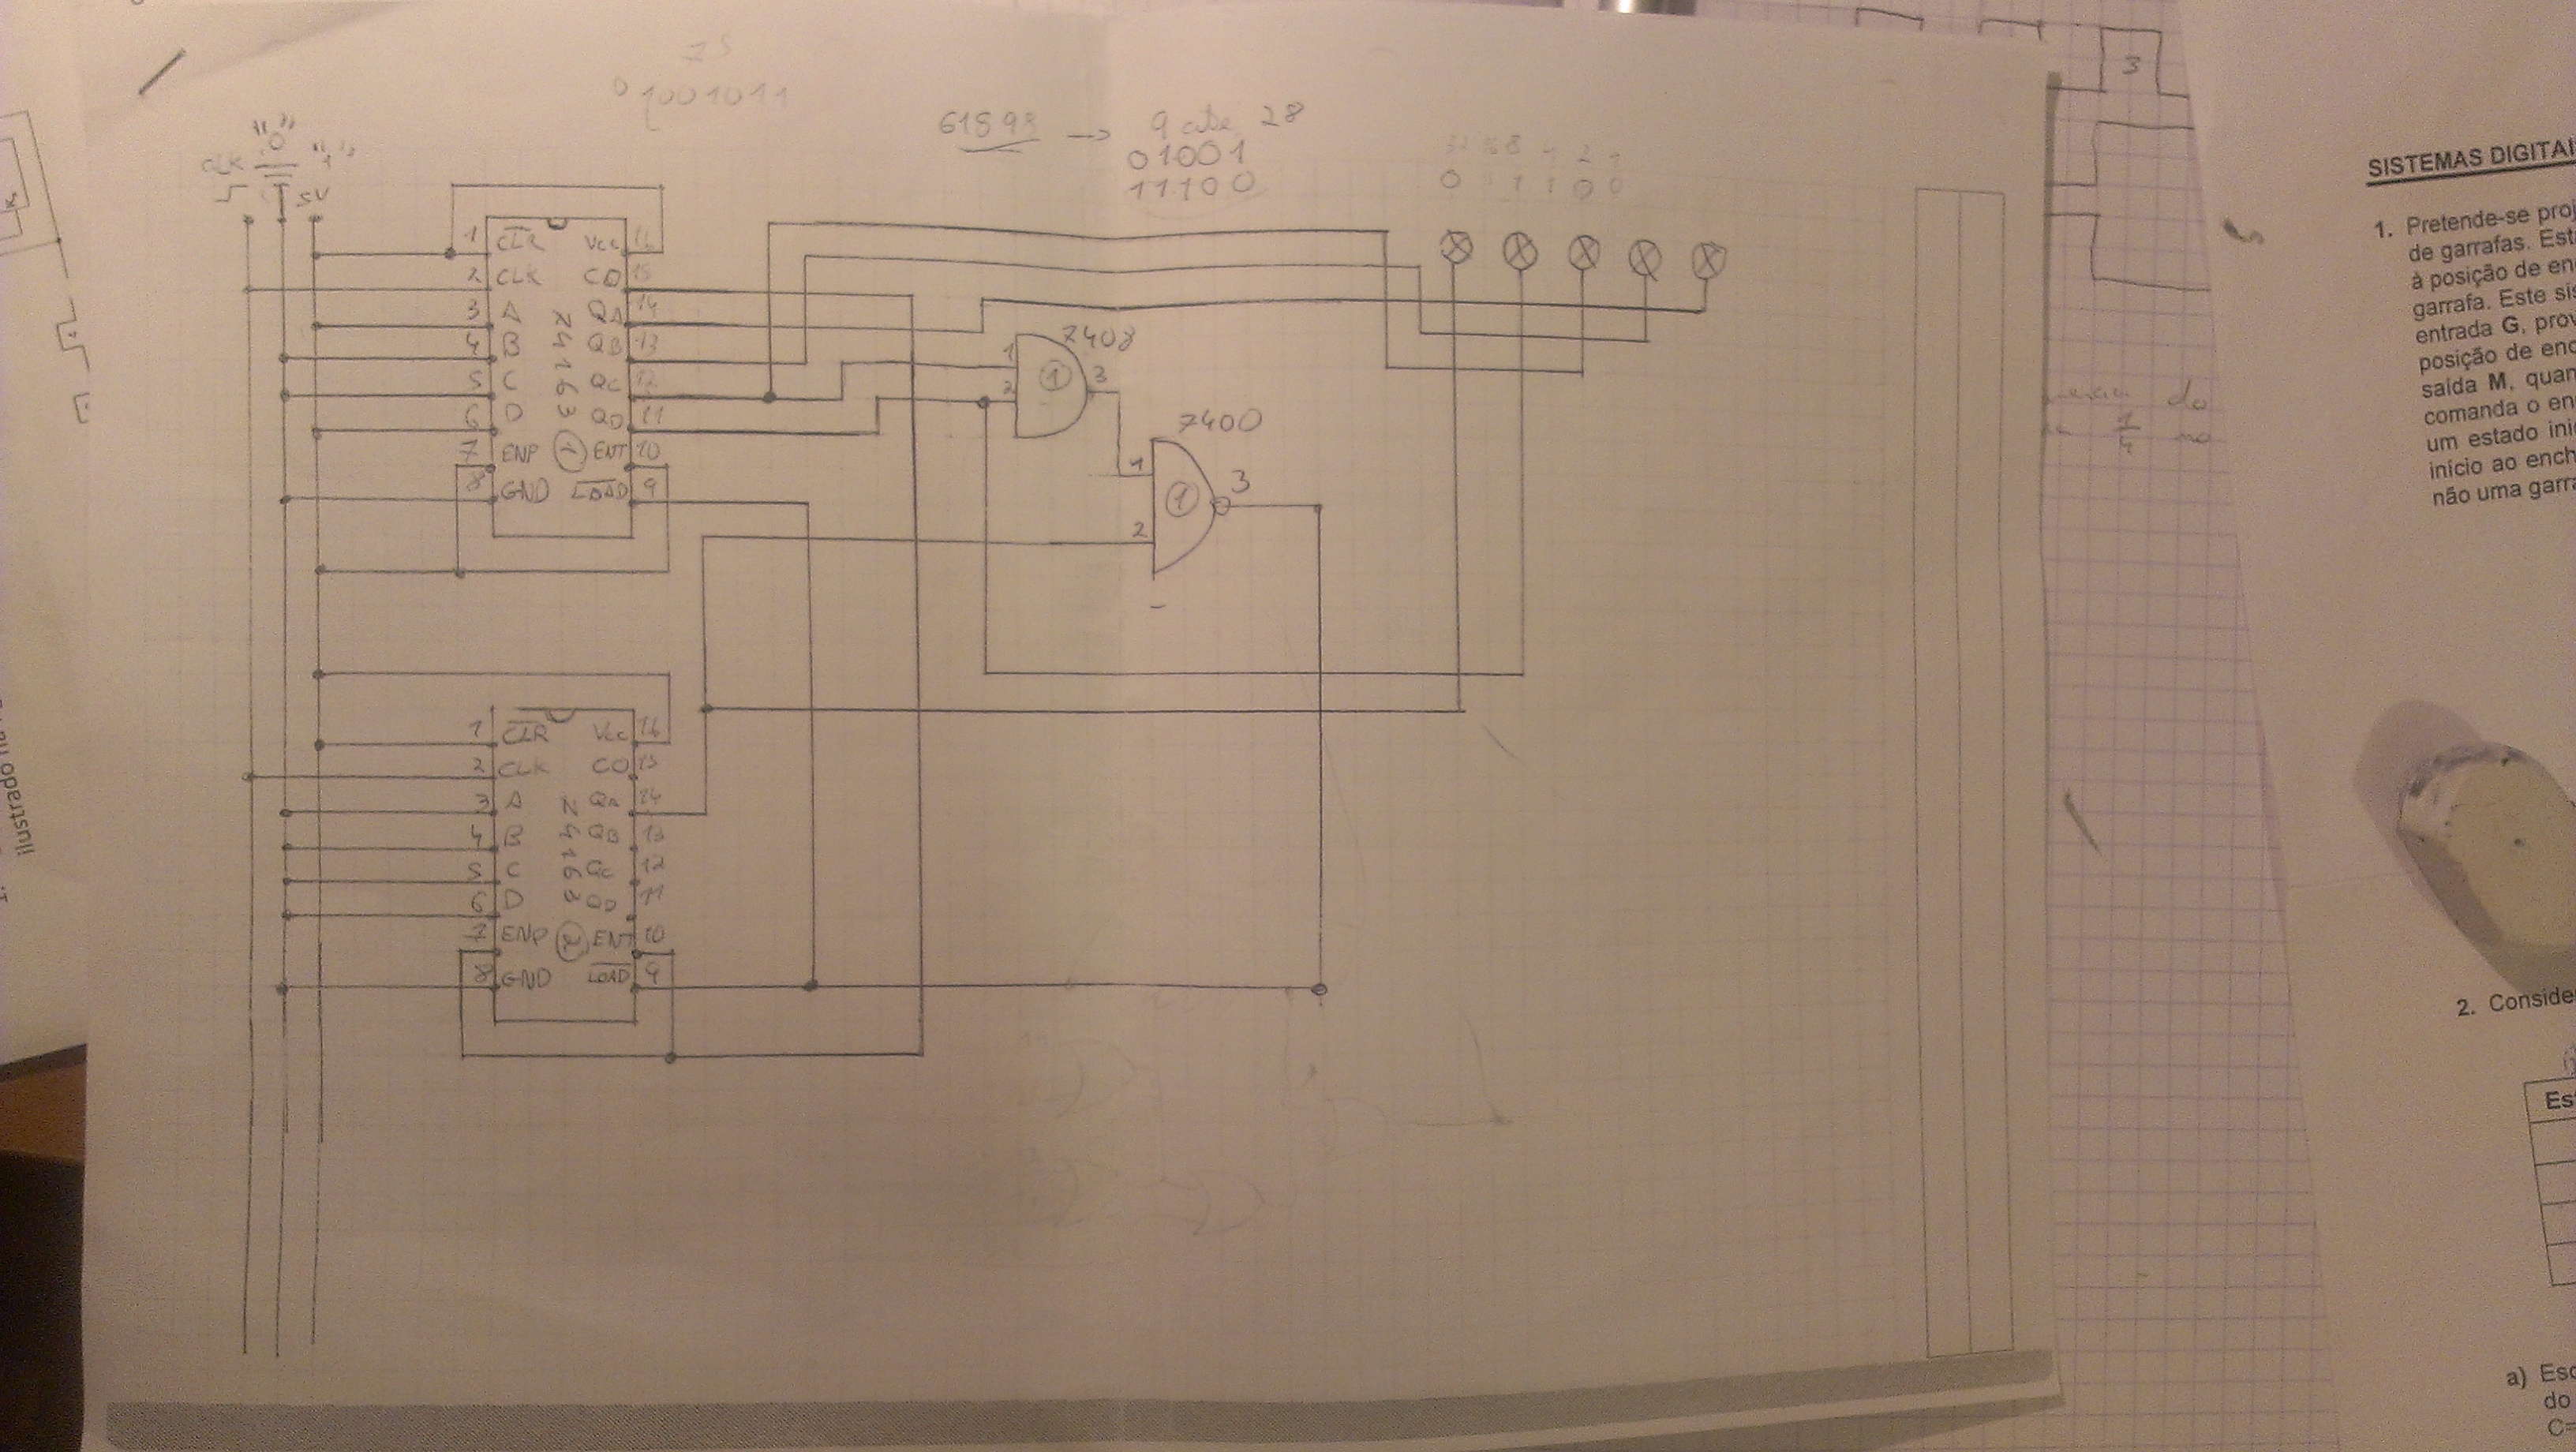 75
01001011
61898 → 9 ate 28
01001
11100
"0"
CLK
"1"
5V
8 4 2 1
0 1 1 0 0
1 CLR VCC 16
2 CLK CO 15
3 A QA 14
4 B QB 13
5 C QC 12
6 D QD 11
7 ENP 1 ENT 10
8 GND LOAD 9
74163
7408
1
2
1
3
7400
1
2
1
3
1 CLR VCC 16
2 CLK CO 15
3 A QA 14
4 B QB 13
5 C QC 12
6 D QD 11
7 ENP 2 ENT 10
8 GND LOAD 9
74163
3
do
1/4 no
ilustrado
SISTEMAS DIGITAI
1. Pretende-se proj
de garrafas. Est
à posição de en
garrafa. Este sis
entrada G, prov
posição de enc
saída M, quan
comanda o en
um estado inic
início ao ench
não uma garra
2. Conside
Es
a) Esc
do
C=